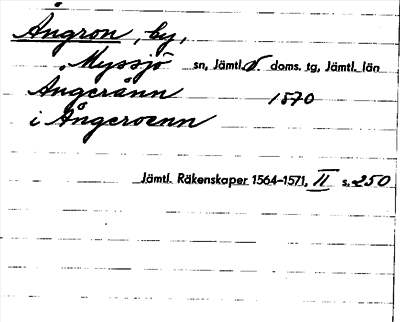 Ångron, by,
Myssjö sn, Jämtl. V. doms. tg, Jämtl. län
Angerånn 1570
i Ångeroenn
Jämtl. Räkenskaper 1564-1571, II s. 250